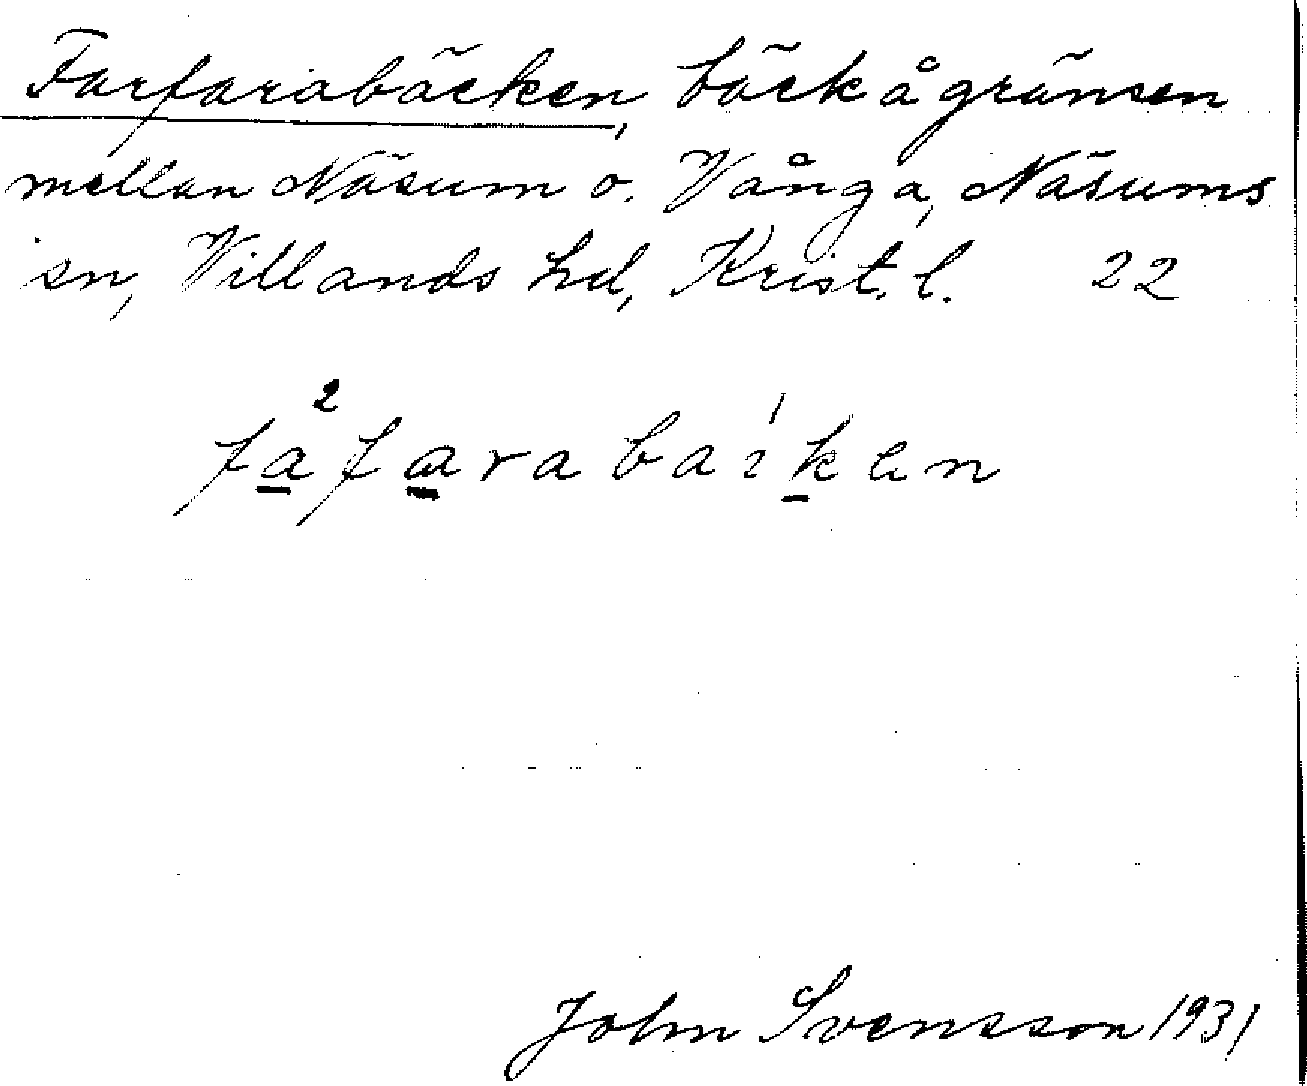 Farfarabäcken, bäck å gränsen
mellan Näsum o. Vånga, Näsums
sn, Villands hd, Krist. l. 22
fa²farabaíken
John Svensson 1931